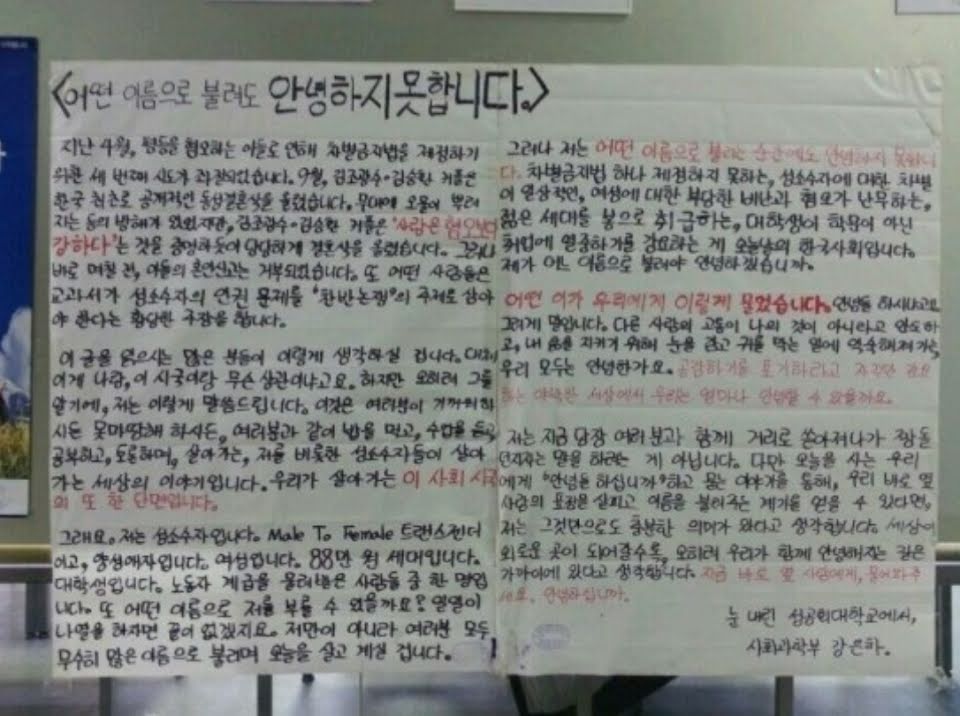 <어떤 이름으로 불려도 안녕하지못합니다.>
지난 4월, 평등을 혐오하는 이들로 인해 차별금지법을 제정하기
위한 세 번째 시도가 좌절되었습니다. 9월, 김조광수·김승환 커플은
한국 최초로 공개적인 동성결혼식을 올렸습니다. 무대에 오물이 뿌려
지는 등의 방해가 있었지만, 김조광수·김승환 커플은 "사랑은 혐오보다
강하다"는 것을 증명하듯이 당당하게 결혼식을 올렸습니다. 그러나
바로 며칠 전, 이들의 혼인신고는 거부되었습니다. 또 어떤 사람들은
교과서가 성소수자의 인권 문제를 "찬반논쟁"의 주제로 삼아
야 한다는 황당한 주장을 합니다.
이 글을 읽으시는 많은 분들이 이렇게 생각하실 겁니다. 대체
이게 나랑, 이 시국이랑 무슨 상관이냐고요. 하지만 오히려 그를
알기에, 저는 이렇게 말씀드립니다. 이것은 여러분이 가까워하
시든 못마땅해 하시든, 여러분과 같이 밥을 먹고, 수업을 듣고
공부하고, 토론하며, 살아가는, 저를 비롯한 성소수자들이 살아
가는 세상의 이야기입니다. 우리가 살아가는 이 사회 시국
의 또 한 단면입니다.
그래요. 저는 성소수자입니다. Male To Female 트랜스젠더
이고, 양성애자입니다. 여성입니다. 88만 원 세대입니다.
대학생입니다. 노동자 계급을 물려받은 사람들 중 한 명입
니다. 또 어떤 이름으로 저를 부를 수 있을까요? 일일이
나열을 하자면 끝이 없겠지요. 저만이 아니라 여러분 모두
무수히 많은 이름으로 불리며 오늘을 살고 계실 겁니다.
그러나 저는 어떤 이름으로 불리는 순간에도 안녕하지 못합니
다. 차별금지법 하나 제정하지 못하는, 성소수자에 대한 차별
이 일상적인, 여성에 대한 부당한 비난과 혐오가 난무하는,
젊은 세대를 봉으로 취급하는, 대학생이 학문이 아닌
취업에 열중하기를 강요하는 게 오늘날의 한국사회입니다.
제가 어느 이름으로 불려야 안녕하겠습니까.
어떤 이가 우리에게 이렇게 물었습니다. 안녕들 하시냐고요.
그러게 말입니다. 다른 사람의 고통이 나의 것이 아니라고 안도하
고, 내 몸을 지키기 위해 눈을 감고 귀를 막는 일에 익숙해져가는,
우리 모두는 안녕한가요. 공감하기를 포기하라고 자꾸만 강요
하는 야박한 세상에서 우리는 얼마나 안녕할 수 있을까요.
저는 지금 당장 여러분과 함께 거리로 쏟아져나가 짱돌
던지자는 말을 하려는 게 아닙니다. 다만 오늘을 사는 우리
에게 "안녕들 하십니까"하고 묻는 이야기를 통해, 우리 바로 옆
사람의 표정을 살피고 이름을 불러주는 계기를 얻을 수 있다면,
저는 그것만으로도 충분한 의미가 있다고 생각합니다. 세상이
외로운 곳이 되어갈수록, 오히려 우리가 함께 안녕해지는 길은
가까이에 있다고 생각합니다. 지금 바로 옆 사람에게, 물어봐주
세요. 안녕하십니까.
눈 내린 성공회대학교에서,
사회과학부 강은하.